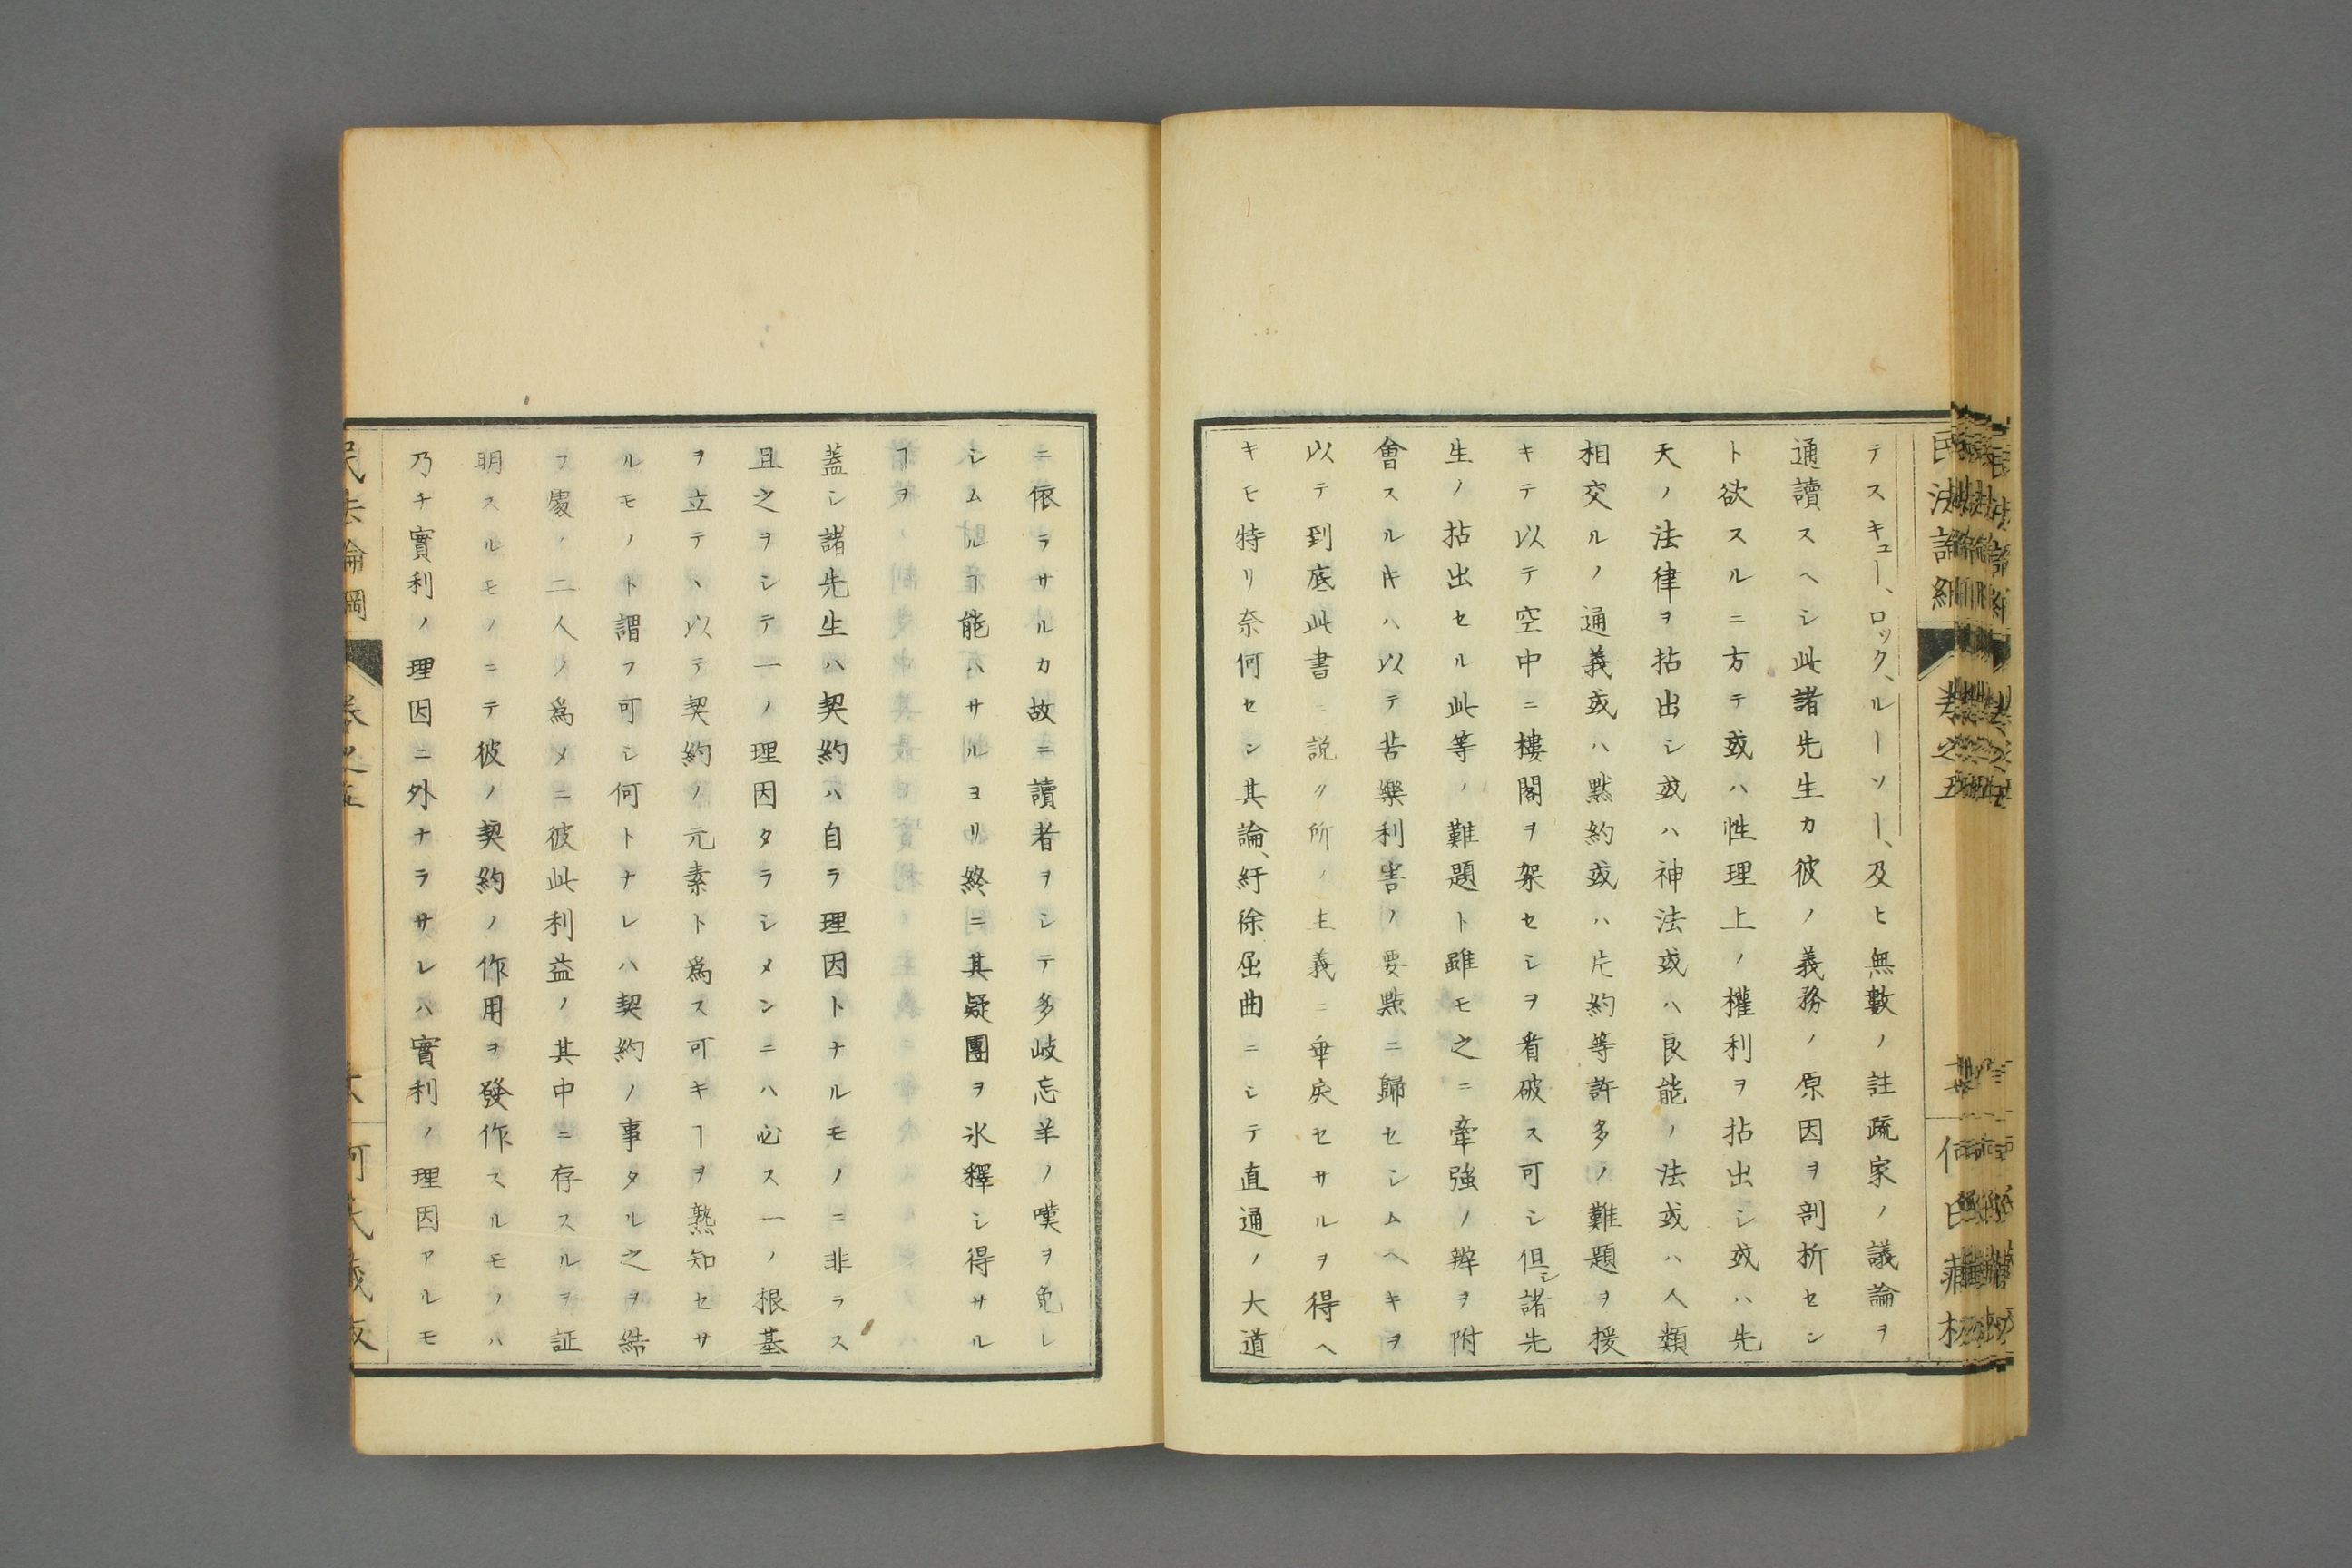 テスキュー、ロック、ルーソー、及ヒ無數ノ註疏家ノ議論ヲ
通讀スヘシ此諸先生カ彼ノ義務ノ原因ヲ剖析セン
ト欲スルニ方テ或ハ性理上ノ權利ヲ拈出シ或ハ先
天ノ法律ヲ拈出シ或ハ神法或ハ良能ノ法或ハ人類
相交ルノ通義或ハ黙約或ハ片約等許多ノ難題ヲ援
キテ以テ空中ニ樓閣ヲ架セシヲ看破ス可シ但シ諸先
生ノ拈出セル此等ノ難題ト雖モ之ニ牽強ノ辨ヲ附
會スルキハ以テ苦樂利害ノ要點ニ歸セシムヘキヲ
以テ到底此書ニ説ク所ノ主義ニ乖戾セサルヲ得ヘ
キモ特リ奈何セン其論、紆徐屈曲ニシテ直通ノ大道
ニ依ラサルカ故ニ讀者ヲシテ多岐忘羊ノ嘆ヲ免レ
シムルヿ能ハサルヨリ終ニ其疑團ヲ氷釋シ得サル
ヿヲ
蓋シ諸先生ハ契約ハ自ラ理因トナルモノニ非ラス
且之ヲシテ一ノ理因タラシメンニハ必ス一ノ根基
ヲ立テヽ以テ契約ノ元素ト爲ス可キヿヲ熟知セサ
ルモノト謂フ可シ何トナレハ契約ノ事タル之ヲ締
フ處ノ二人ノ爲メニ彼此利益ノ其中ニ存スルヲ証
明スルモノニテ彼ノ契約ノ作用ヲ發作スルモノハ
乃チ實利ノ理因ニ外ナラサレハ實利ノ理因アルモ
民法論綱
卷之五